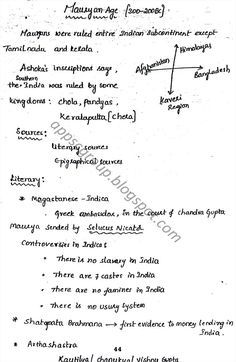 Mauryan Age [300-200BC]
Mauryans were ruled entire Indian subcontinent except
Tamilnadu and kerala.
Himalayas
Afghanistan
Bangladesh
Kaveri
Region
Ashoka's inscriptions says,
Southern
the India was ruled by some
kingdoms: chola, Pandyas,
Keralaputta [chera]
Sources:
Literary sources
Epigraphical sources
Literary:
* Magastanese - Indica
Greek ambassador, in the court of chandra Gupta
Maurya sended by Selucus Nicatd
Controversies in Indicas
• There is no slavery in India
• There are 7 castes in India
• There are no famines in India
• There is no usury system
* Shatapata Brahmana → first evidence to money lending in
India.
* Arthashastra
44
Kautilya/ chanakya/ Vishnu Gupta
appsc-group.blogspot.com